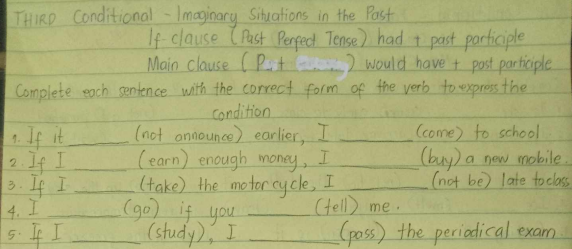 THIRD Conditional - Imaginary Situations in the Past
If-clause (Past Perfect Tense) had + past participle
Main clause ( would have + past participle
Complete each sentence with the correct form of the verb to express the
condition
1. If it ______ (not announce) earlier, I ______ (come) to school
2. If I ______ (earn) enough money, I ______ (buy) a new mobile.
3. If I ______ (take) the motorcycle, I ______ (not be) late to class
4. I ______ (go) if you ______ (tell) me.
5. If I ______ (study), I ______ (pass) the periodical exam